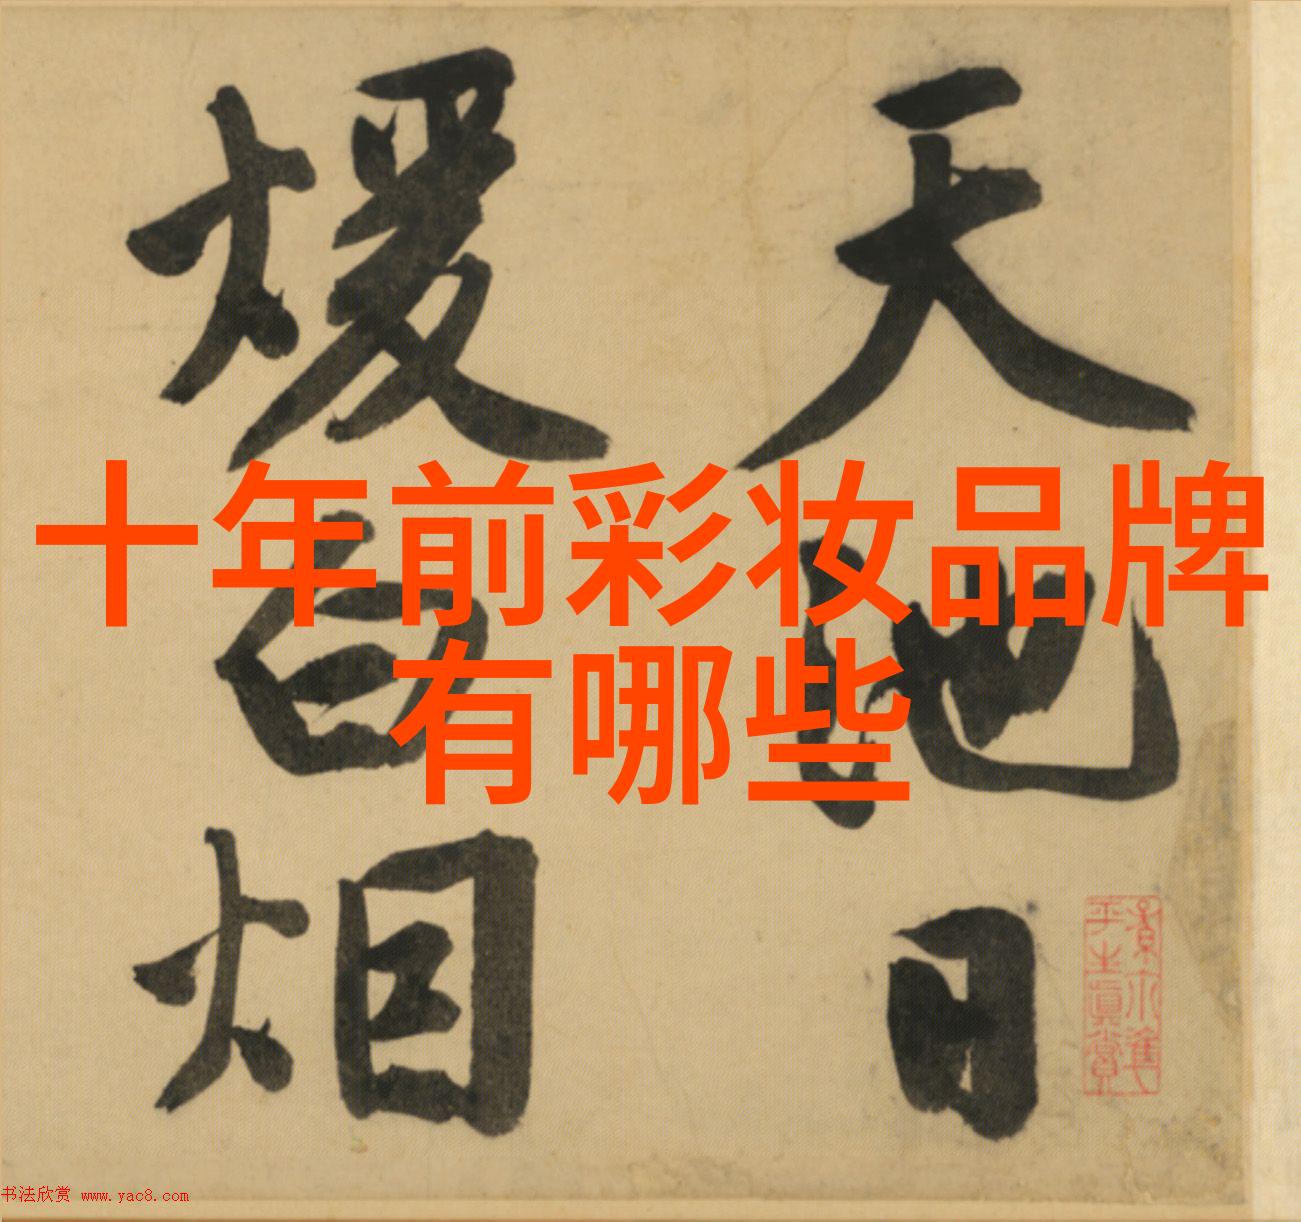 十年前彩妆品牌
有哪些
天地日
煖
平生真賞
书法欣赏 www.yac8.com